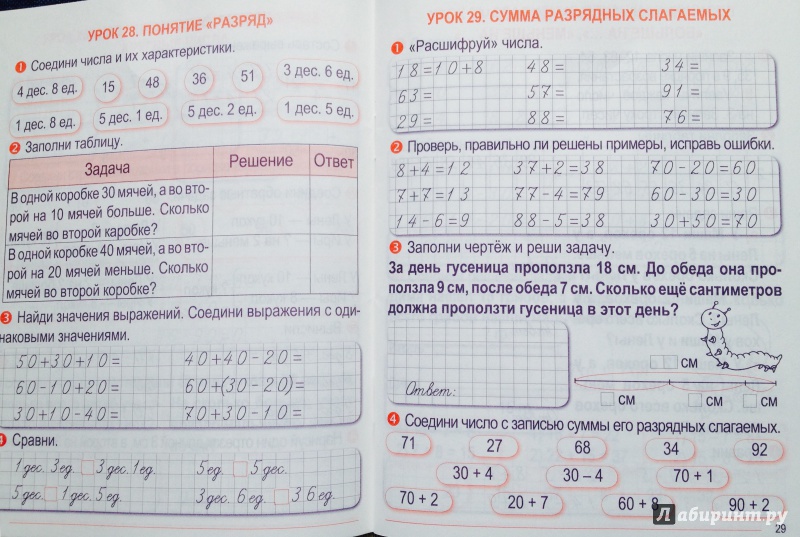 УРОК 28. ПОНЯТИЕ «РАЗРЯД»
1 Соедини числа и их характеристики.
4 дес. 8 ед. 15 48 36 51 3 дес. 6 ед.
1 дес. 8 ед. 5 дес. 1 ед. 5 дес. 2 ед. 1 дес. 5 ед.
2 Заполни таблицу.
Задача Решение Ответ
В одной коробке 30 мячей, а во вто-
рой на 10 мячей больше. Сколько
мячей во второй каробке?
В одной коробке 40 мячей, а во вто-
рой на 20 мячей меньше. Сколько
мячей во второй коробке?
3 Найди значения выражений. Соедини выражения с оди-
наковыми значениями.
50+30+10= 40+40-20=
60-10+20= 60+(30-20)=
30+10-40= 70+30-10=
4 Сравни.
1 дес. 3 ед. 3 дес. 1 ед. 5 ед. 5 дес.
5 дес. 1 дес. 5 ед. 3 дес. 6 ед. 3 6 ед.
УРОК 29. СУММА РАЗРЯДНЫХ СЛАГАЕМЫХ
1 «Расшифруй» числа.
18=10+8 48= 34=
63= 57= 91=
29= 88= 76=
2 Проверь, правильно ли решены примеры, исправь ошибки.
8+4=12 37+2=38 70-20=60
7+7=13 77-4=79 60-30=30
14-6=9 88-5=38 30+50=70
3 Заполни чертёж и реши задачу.
За день гусеница проползла 18 см. До обеда она про-
ползла 9 см, после обеда 7 см. Сколько ещё сантиметров
должна проползти гусеница в этот день?
см
Ответ:
см см см
4 Соедини число с записью суммы его разрядных слагаемых.
71 27 68 34 92
30 + 4 30 – 4 70 + 1
70 + 2 20 + 7 60 + 8 90 + 2
Лабиринт.ру
29